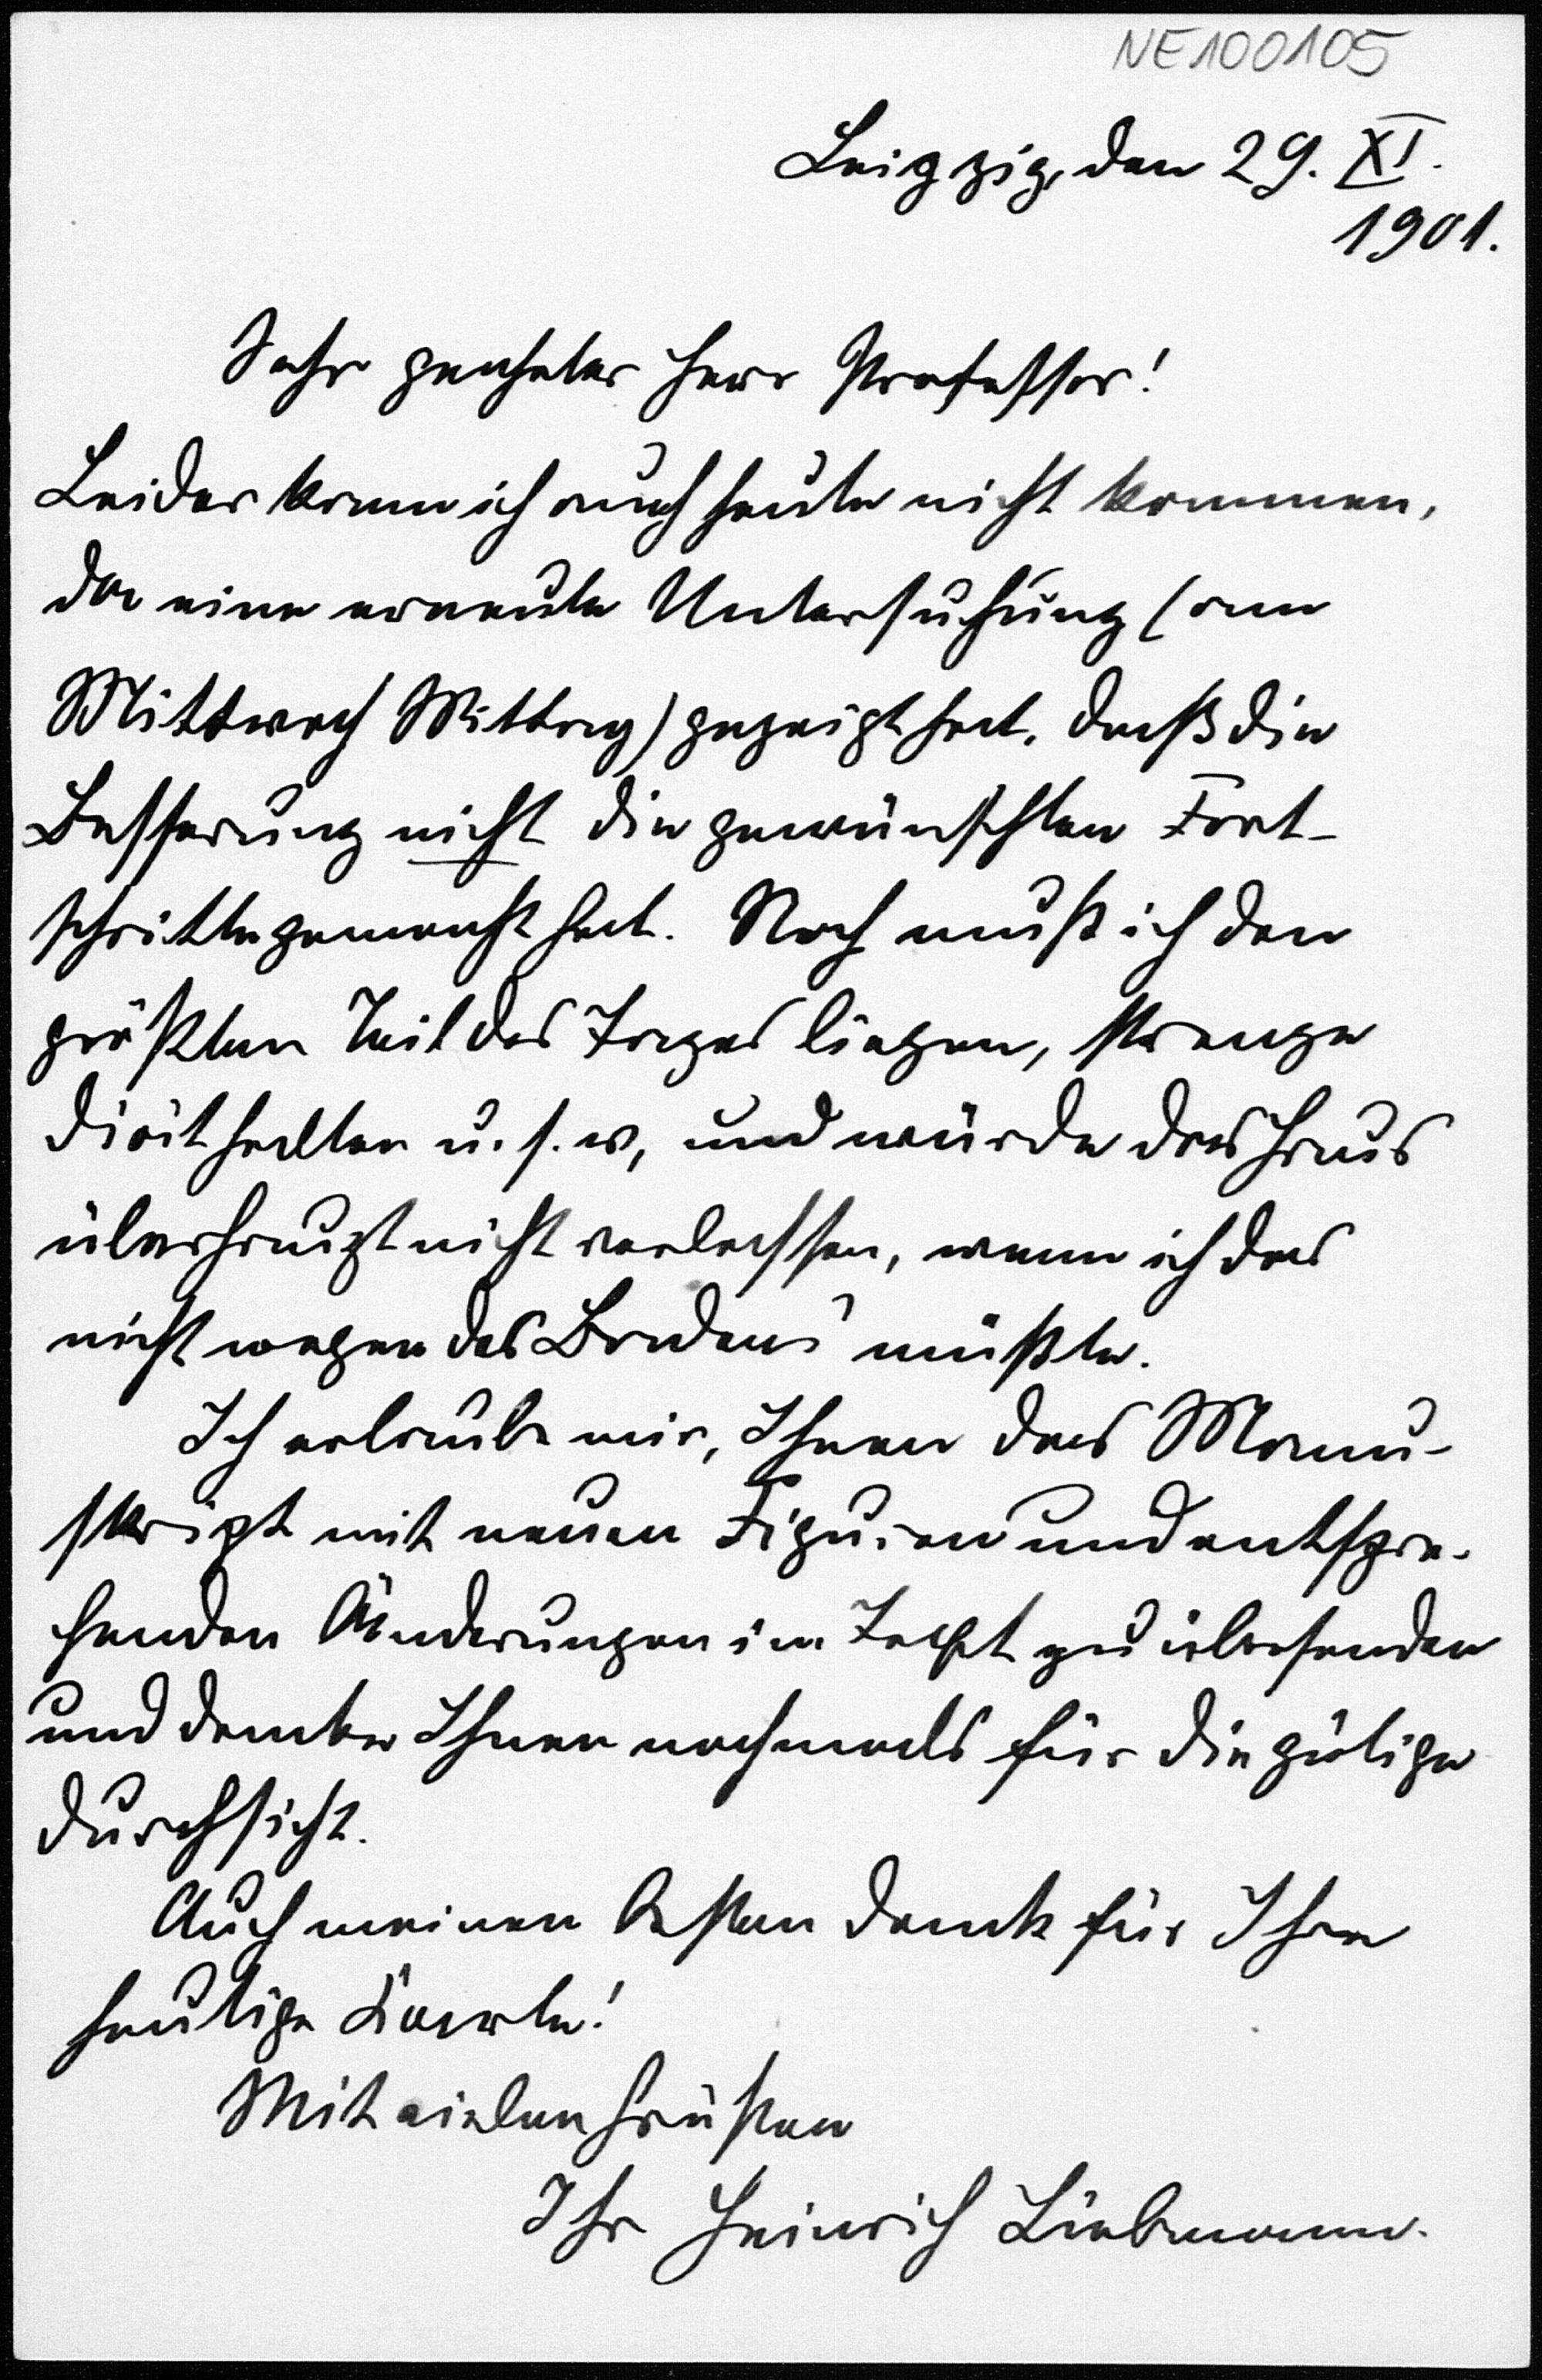 NE100105
Leipzig, den 29. XI.
1901.
Sehr geehrter Herr Professor!
Leider kann ich auch heute nicht kommen,
da eine erneute Untersuchung (am
Mittwoch Mittag) gezeigt hat, daß die
Besserung nicht die gewünschten Fort-
schritte gemacht hat. Noch muß ich den
größten Teil des Tages liegen, strenge
Diät halten u. s. w., und würde das Haus
überhaupt nicht verlassen, wenn ich das
nicht wegen des Badens müßte.
Ich erlaube mir, Ihnen das Manu-
skript mit neuen Figuren und entspre-
chenden Änderungen im Text zu übersenden
und danke Ihnen nochmals für die gütige
Durchsicht.
Auch meinen besten Dank für Ihre
heutige Karte!
Mit vielen Grüßen
Ihr Heinrich Liebmann.